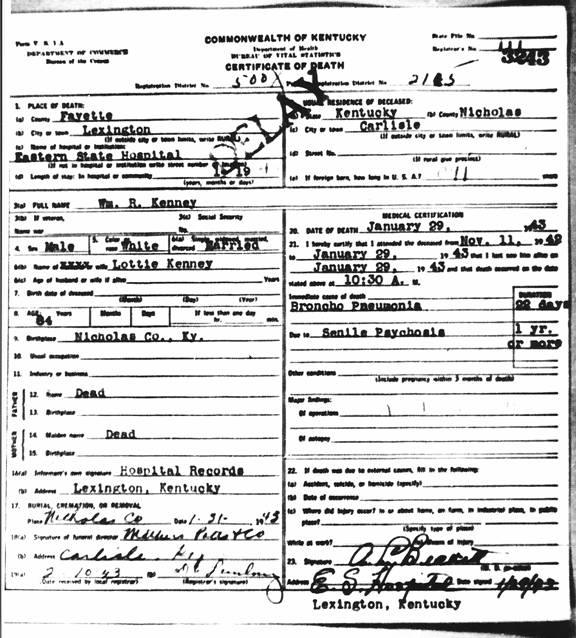 COMMONWEALTH OF KENTUCKY
Form V S 1 A
DEPARTMENT OF COMMERCE
Bureau of the Census
Department of Health
BUREAU OF VITAL STATISTICS
CERTIFICATE OF DEATH
State File No.
Registrar's No.
3243
Registration District No.
Registration District No. 2185
DELAY
1. PLACE OF DEATH:
(a) County Fayette
(b) City or town Lexington
(If outside city or town limits, write RURAL)
(c) Name of hospital or institution:
Eastern State Hospital
(If not in hospital or institution write street number
(d) Length of stay: In hospital or community
(years, months or days)
USUAL RESIDENCE OF DECEASED:
State Kentucky (b) County Nicholas
(c) City or town Carlisle
(If outside city or town limits, write RURAL)
(d) Street No.
(If rural give precinct)
(e) If foreign born, how long in U. S. A.? years
3(a) FULL NAME Wm. R. Kenney
3(b) If veteran,
Name war
3(c) Social Security
No.
4. Sex Male
5. Color or race White
divorced Married
6(b) Name of wife Lottie Kenney
6(c) Age of husband or wife if alive Years
7. Birth date of deceased
(Month) (Day) (Year)
8. AGE 84 Years Months Days If less than one day
hr. min.
9. Birthplace Nicholas Co., Ky.
10. Usual occupation
11. Industry or business
FATHER
12. Name Dead
13. Birthplace
MOTHER
14. Maiden name Dead
15. Birthplace
16(a) Informant's own signature Hospital Records
(b) Address Lexington, Kentucky
17. BURIAL, CREMATION, OR REMOVAL
Place Nicholas Co Date 1-31- 1943
18(a) Signature of funeral director
(b) Address Carlisle, Ky
19(a) 2 10 43 (b)
(Date received by local registrar) (Registrar's signature)
MEDICAL CERTIFICATION
20. DATE OF DEATH January 29, 1943
21. I hereby certify that I attended the deceased from Nov. 11, 1942
to January 29, 1943 that I last saw him alive on
January 29, 1943 and that death occurred on the date
stated above at 10:30 A. M.
Immediate cause of death
DURATION
Broncho Pneumonia 22 days
Due to Senile Psychosis 1 yr.
or more
Other conditions
(Include pregnancy within 3 months of death)
Major findings:
Of operations
Of autopsy
22. If death was due to external causes, fill in the following:
(a) Accident, suicide, or homicide (specify)
(b) Date of occurrence
(c) Where did injury occur? in or about home, on farm, in industrial place, in public
place?
(Specify type of place)
While at work? Means of injury
23. Signature
Address E. S. Hospital Date signed
Lexington, Kentucky